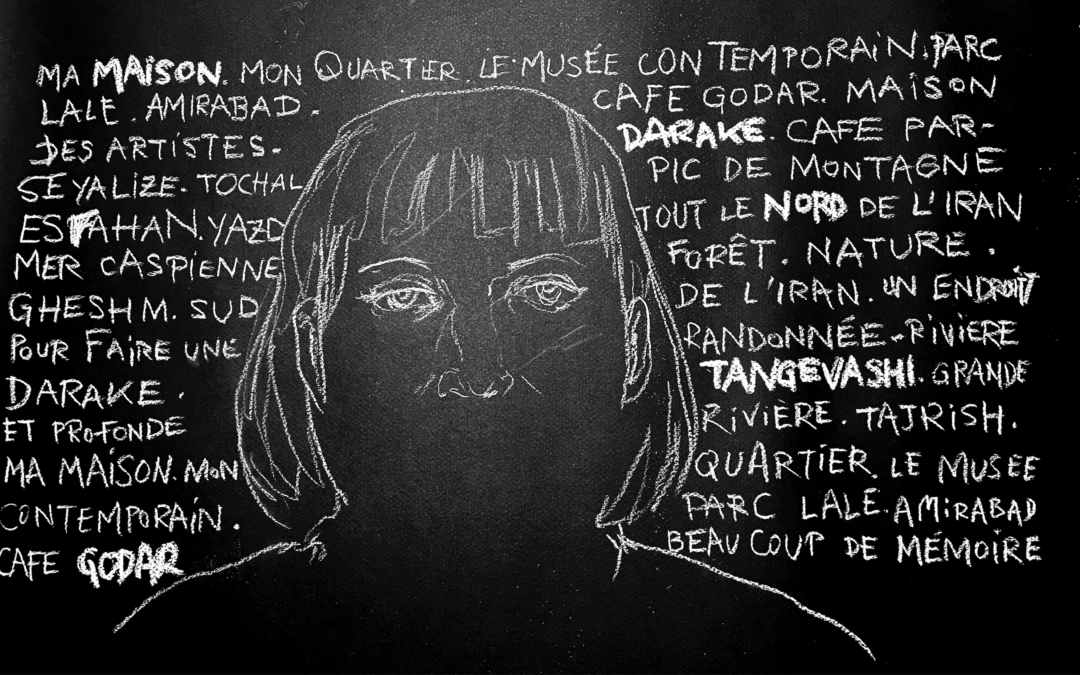 MA MAISON. MON QUARTIER. LE MUSÉE CONTEMPORAIN. PARC
LALE. AMIRABAD. CAFE GODAR. MAISON
DES ARTISTES- DARAKE. CAFE PAR-
SEYALIZE. TOCHAL PIC DE MONTAGNE
ESFAHAN. YAZD TOUT LE NORD DE L'IRAN
MER CASPIENNE FORÊT. NATURE.
GHESHM. SUD DE L'IRAN. UN ENDROIT
POUR FAIRE UNE RANDONNÉE-RIVIERE
DARAKE. TANGEVASHI. GRANDE
ET PROFONDE RIVIÈRE. TAJRISH.
MA MAISON. MON QUARTIER. LE MUSEE
CONTEMPORAIN. PARC LALE. AMIRABAD
CAFE GODAR BEAUCOUP DE MÉMOIRE